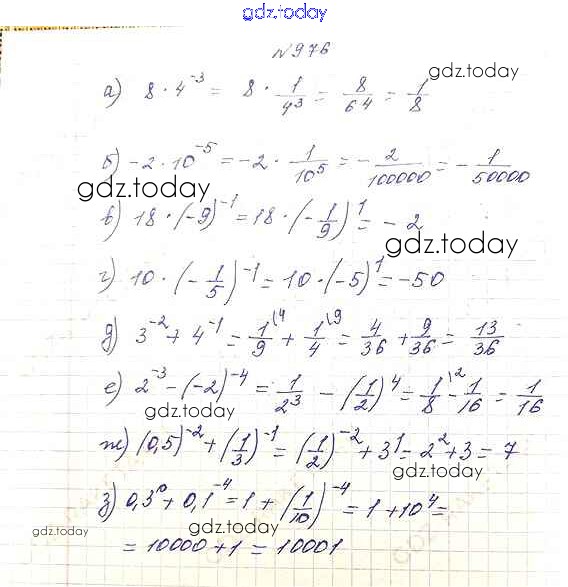 gdz.today
gdz.today
№976
а) 8 · 4⁻³ = 8 · 1/4³ = 8/64 = 1/8
gdz.today
б) -2 · 10⁻⁵ = -2 · 1/10⁵ = - 2/100000 = - 1/50000
gdz.today
в) 18 · (-9)⁻¹ = 18 · (- 1/9)¹ = - 2
gdz.today
г) 10 · (- 1/5)⁻¹ = 10 · (-5)¹ = -50
д) 3⁻² + 4⁻¹ = 1/9 \4 + 1/4 \9 = 4/36 + 9/36 = 13/36
gdz.today
е) 2⁻³ - (-2)⁻⁴ = 1/2³ - (1/2)⁴ = 1/8 \2 - 1/16 = 1/16
gdz.today
ж) (0,5)⁻² + (1/3)⁻¹ = (1/2)⁻² + 3¹ = 2² + 3 = 7
gdz.today
з) 0,3⁰ + 0,1⁻⁴ = 1 + (1/10)⁻⁴ = 1 + 10⁴ =
gdz.today
gdz.today
= 10000 + 1 = 10001